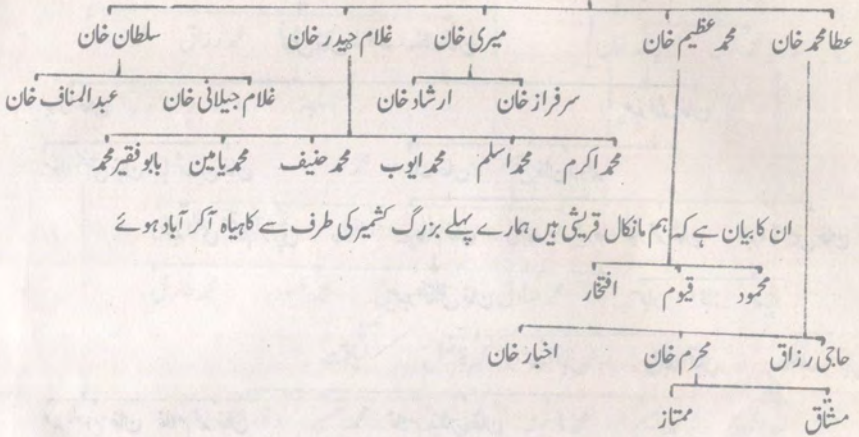 عطا محمد خان محمد عظیم خان میری خان غلام حیدر خان سلطان خان
سرفراز خان ارشاد خان غلام جیلانی خان عبد المناف خان
محمد اکرم محمد اسلم محمد ایوب محمد حنیف محمد یامین بابو فقیر محمد
ان کا بیان ہے کہ ہم مانکال قریشی ہیں ہمارے پہلے بزرگ کشمیر کی طرف سے کاہیاہ آکر آباد ہوئے
محمود قیوم افتخار
حاجی رزاق محرم خان اخبار خان
مشتاق ممتاز